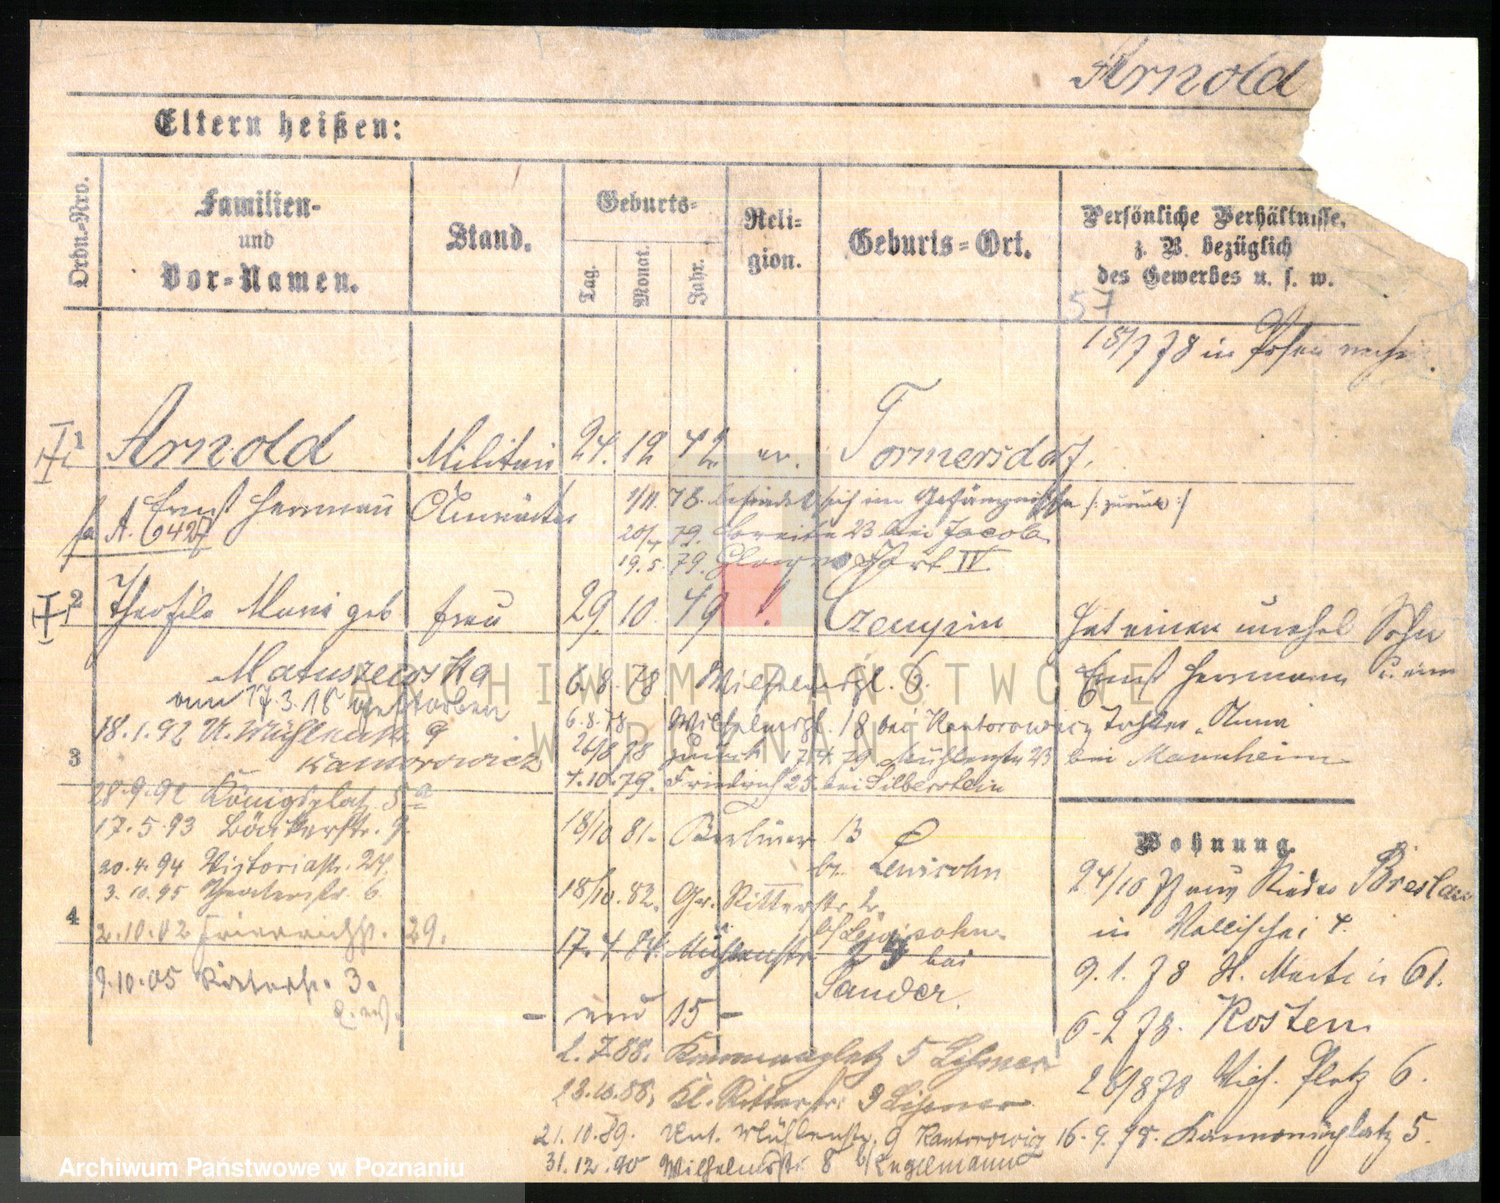 Arnold
Eltern heißen:
Ordn.-Nro.
Familien-
und
Vor-Namen.
Stand.
Geburts-
Tag.
Monat.
Jahr.
Reli-
gion.
Geburts-Ort.
Persönliche Verhältnisse,
z. B. bezüglich
des Gewerbes u. s. w.
57
18/7 78 in Posen
1 Arnold Militair 24. 12 42 ev. Tormersdorf.
Ernst Herrmann Anwärter 1/11. 78. befindet sich im Gefängnisse /: zurück :/
A. 6427
20/4 79. Breite 23 bei Jacob
19. 5. 79. Glogau Fort IV
2 Theofile Marie geb Frau 29. 10. 49 Czempin hat einen unehel Sohn
Matuszewska 6. 8. 78 Wilhelmspl. 6. Ernst Herrmann u. eine
am 17.3.18 gestorben 6.8.78 Wilhelmspl. 18 bei Kantorowicz Tochter Anna
18.1.92 U. Mühlenstr. 9 26/8 78 zurück 17.4.79 Mühlenstr 23 bei Mannheim
3 Kantorowicz 7.10.79. Friedrich 25. bei Silberstein
28.9.92 Königsplatz 5a
17.5.93 Bäckerstr. 9. 18/10 81. Berliner 13
b. Lewisohn
20.4.94 Victoriastr. 27.
3.10.95 Theaterstr 6. 18/10. 82. Gr. Ritterstr. 2.
4 2.10.02 Friedrichstr. 29.
17. 4 84. Mühlenstr. bei
Sander.
9.10.05 Ritterstr. 3.
- und 15 -
2.7.88. Kanonenplatz 5 Lissner
28.10.88. Kl. Ritterstr. 9 Lissner
21.10.89. Unt. Mühlenstr. 9 Kantorowicz
31.12.90 Wilhelmstr 8 b/Engelmann
Wohnung.
24/10 77 aus Breslau
in Wallischei 4.
9. 1. 78 St. Martin 61.
6. 2 78. Kosten
26/8 78 Wilh. Platz 6.
16. 9. 78. Kanonenplatz 5.
ARCHIWUM PAŃSTWOWE
W POZNANIU
Archiwum Państwowe w Poznaniu